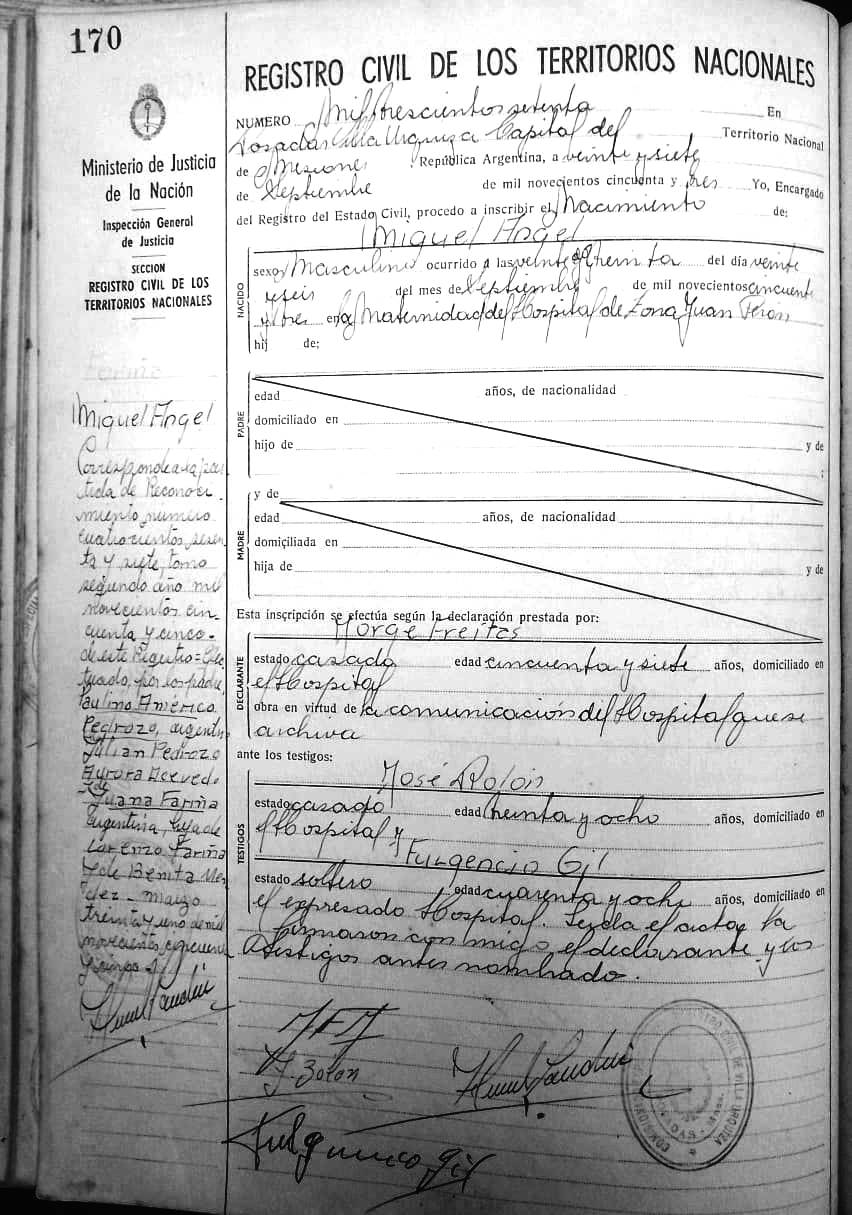 170
REGISTRO CIVIL DE LOS TERRITORIOS NACIONALES
Ministerio de Justicia
de la Nación
Inspección General
de Justicia
SECCION
REGISTRO CIVIL DE LOS
TERRITORIOS NACIONALES
NUMERO Mil trescientos setenta En
Posadas Villa Urquiza Capital del Territorio Nacional
de Misiones República Argentina, a veinte y siete
de Septiembre de mil novecientos cincuenta y tres Yo, Encargado
del Registro del Estado Civil, procedo a inscribir el Nacimiento de:
Miguel Angel
NACIDO
sexo Masculino ocurrido a las veinte treinta del día veinte
y seis del mes de Septiembre de mil novecientos cincuenta
y tres en la Maternidad del Hospital de Zona Juan Perón
hij de:
PADRE
edad años, de nacionalidad
domiciliado en
hijo de y de
;
MADRE
y de
edad años, de nacionalidad
domiciliada en
hija de y de
Esta inscripción se efectúa según la declaración prestada por:
Jorge Freites
DECLARANTE
estado casado edad cincuenta y siete años, domiciliado en
el Hospital
obra en virtud de la comunicación del Hospital que se
archiva
ante los testigos:
José Rolón
TESTIGOS
estado casado edad treinta y ocho años, domiciliado en
el Hospital y
Fulgencio Gil
estado soltero edad cuarenta y ocho años, domiciliado en
el expresado Hospital. Leida el acta la
firmaron con migo el declarante y los
testigos antes nombrado.
Miguel Angel
Corresponde a la par
tida de Reconoci
miento numero
cuatrocientos sesen
ta y siete, tomo
segundo año mil
novecientos cin
cuenta y cinco.
de este Registro = Efec
tuado, por los padre
Paulino Américo
Pedrozo, argentino
Julian Pedrozo
Aurora Acevedo
y de
Juana Fariña
argentina, hija de
Lorenzo Fariña
y de Benita Men
dez - marzo
treinta y uno de mil
novecientos cincuenta
y cinco
J. Rolon
Fulgencio Gil